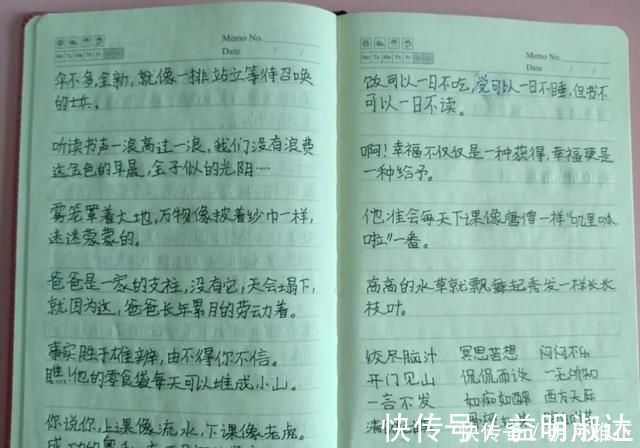 Memo No.
Mo Tu We Th Fr
Date / /
伞不多,全新,就像一排站立等待召唤
的士兵。
听读书声一浪高过一浪,我们没有浪费
这金色的早晨,金子似的光阴……
雾笼罩着大地,万物像披着纱巾一样,
迷迷蒙蒙的。
爸爸是一家的支柱,没有它,天会塌下,
就因为这,爸爸长年累月的劳动着。
事实胜于雄辩,由不得你不信。
瞧!他的零食袋每天可以堆成小山。
你说你,上课像流水,下课像老虎。
Memo No.
Mo Tu We Th Fr
Date / /
饭可以一日不吃,觉可以一日不睡,但书不
可以一日不读。
啊!幸福不仅仅是一种获得,幸福更是
一种给予。
他准会每天下课像唐僧一样“叽里呱
啦”一番。
高高的水草就飘舞起秀发一样长长
枝叶。
绞尽脑汁 冥思苦想 闷闷不乐
开门见山 侃侃而谈 一无所知
一言不发 如痴如醉 西方天际
快传号/益明淑达
快传号/